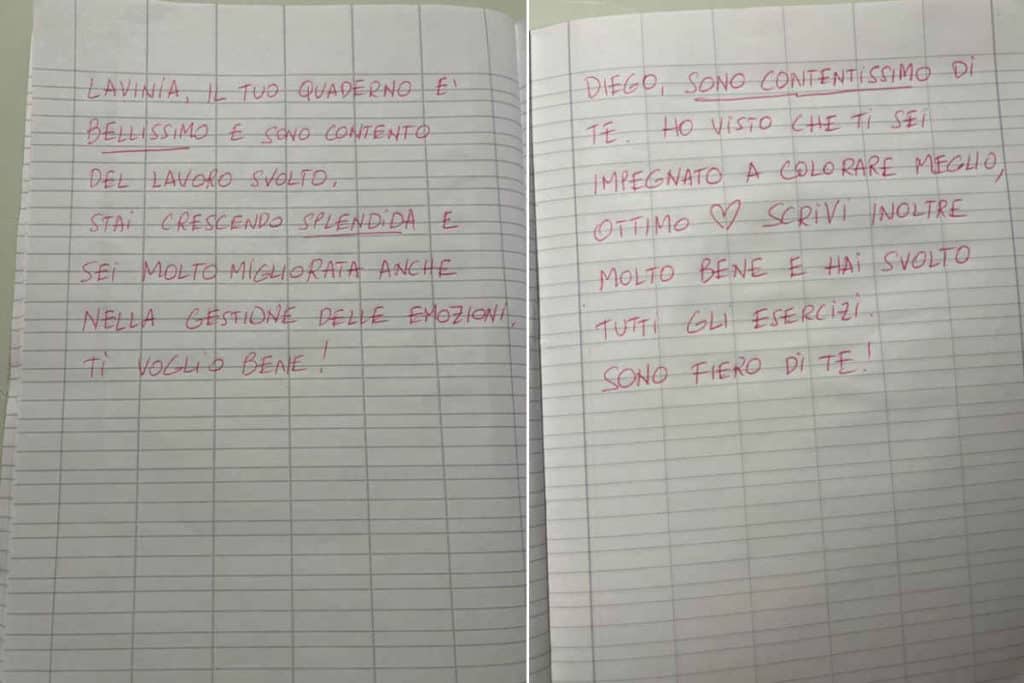 LAVINIA, IL TUO QUADERNO E'
BELLISSIMO E SONO CONTENTO
DEL LAVORO SVOLTO.
STAI CRESCENDO SPLENDIDA E
SEI MOLTO MIGLIORATA ANCHE
NELLA GESTIONE DELLE EMOZIONI.
TI VOGLIO BENE!
DIEGO, SONO CONTENTISSIMO DI
TE. HO VISTO CHE TI SEI
IMPEGNATO A COLORARE MEGLIO,
OTTIMO ♡ SCRIVI INOLTRE
MOLTO BENE E HAI SVOLTO
TUTTI GLI ESERCIZI.
SONO FIERO DI TE!